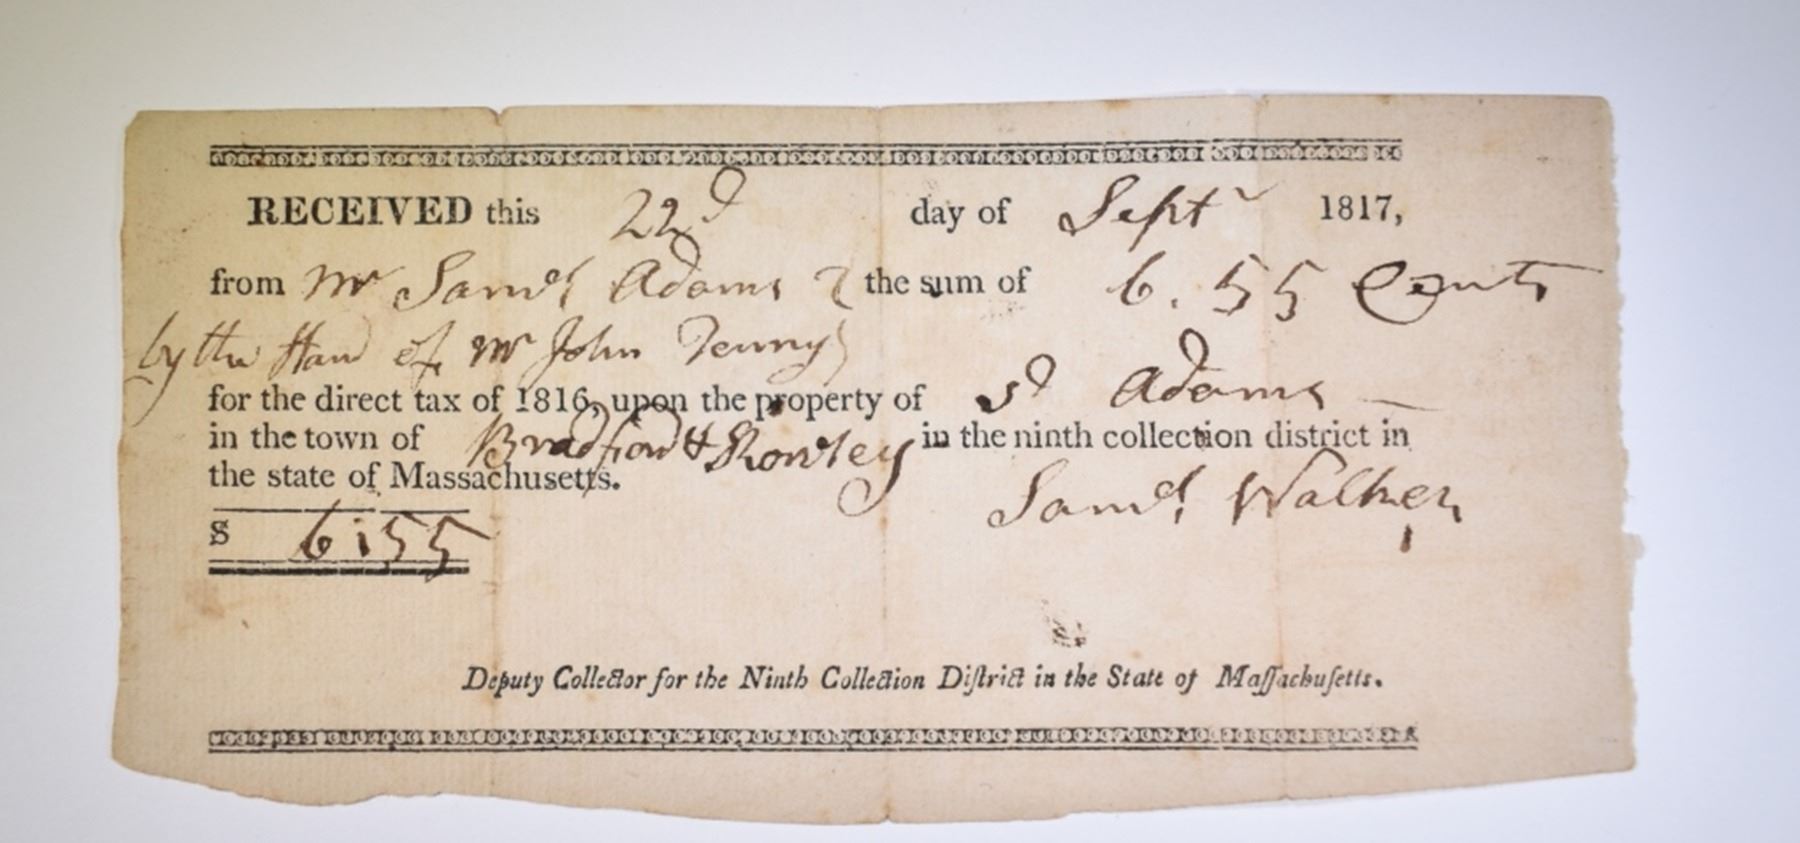 RECEIVED this 22d day of Septr 1817,
from Mr Saml Adams } the sum of 6.55 Cents
by the Hand of Mr John Tenny }
for the direct tax of 1816, upon the property of sd Adams —
in the town of Bradford & Rowley in the ninth collection district in
the state of Massachusetts.
Saml Walker
$ 6:55
Deputy Collector for the Ninth Collection Diſtrict in the State of Maſſachuſetts.